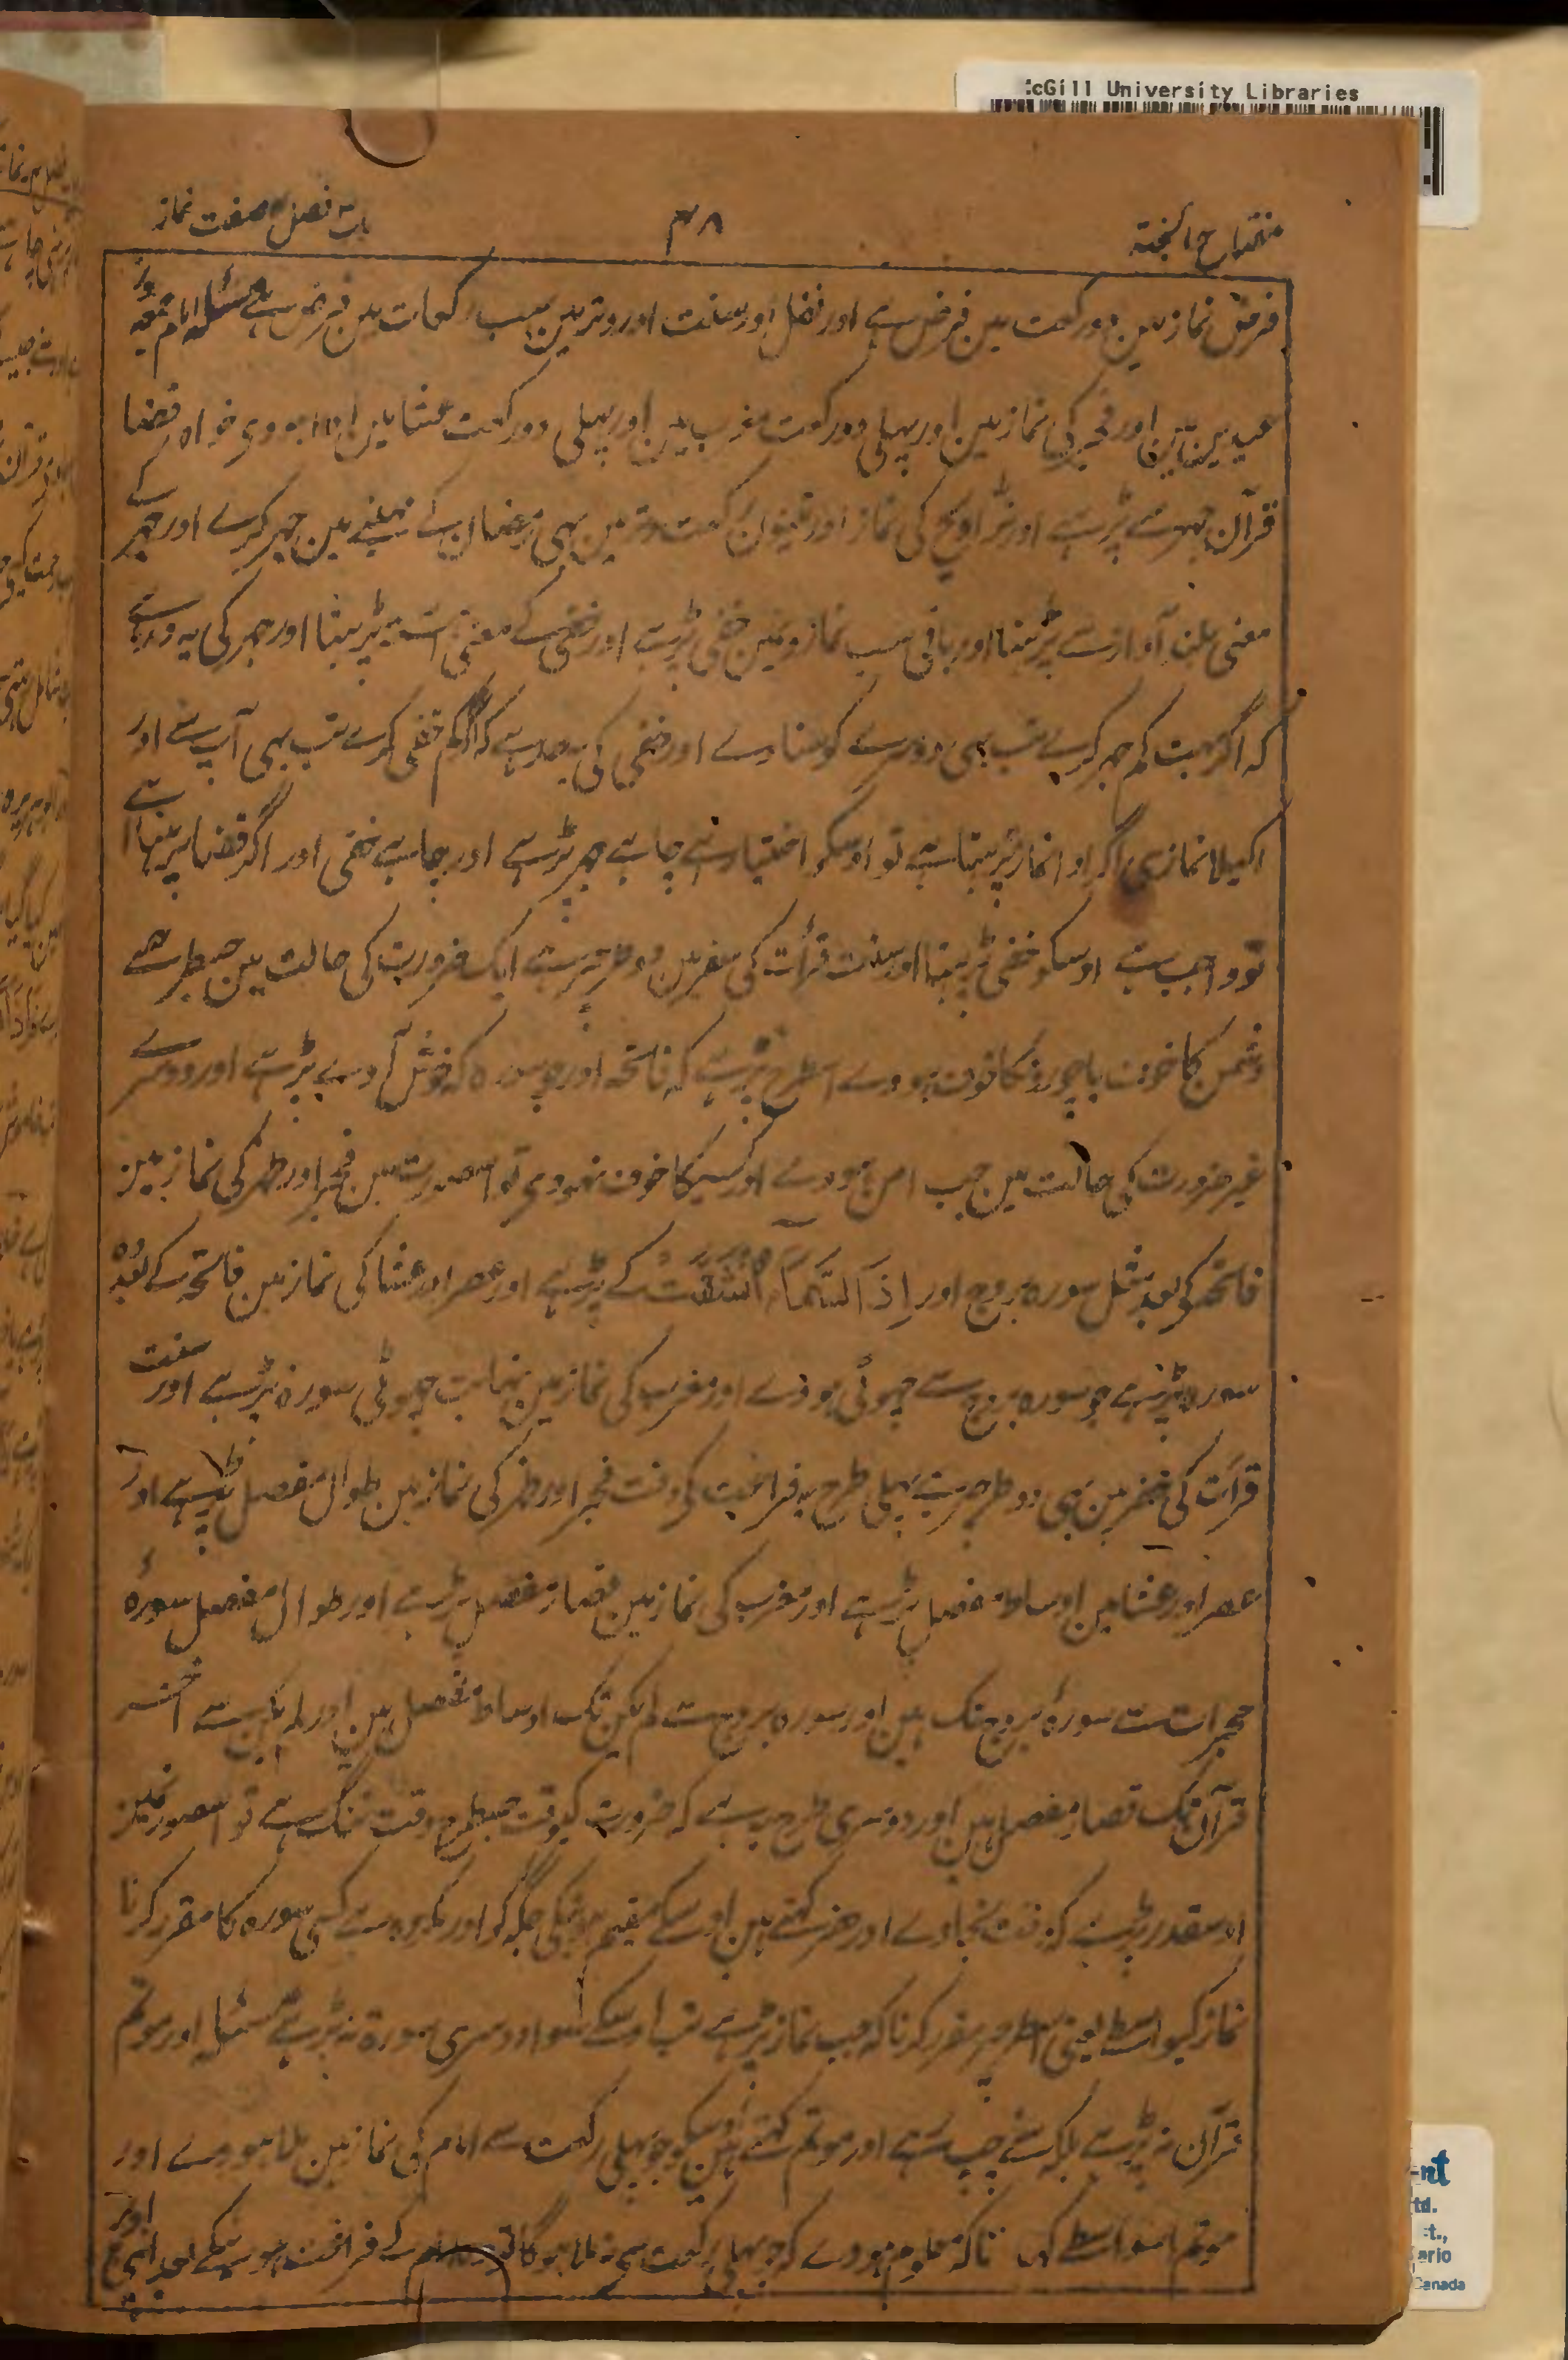 McGill University Libraries
مفتاح الجنۃ
۳۸
باب فصل صفت نماز
فرض نماز مین دو رکعت مین فرض ہے اور نفل اور سنت اور وتر مین سب رکعات مین فرض ہے مسئلہ امام جمعہ اور
عیدین مین اور فجر کی نماز مین اور پہلی دو رکعت مغرب مین اور پہلی دو رکعت عشا مین ادا ہووی خواہ قضا
قرآن جہر سے پڑہے اور تراویح کی نماز اور تینون رکعت وتر مین بہی رمضان کے مہینے مین جہر کرے اور جہر کے
معنی بلند آواز سے پڑہنا اور باقی سب نمازونمین خفی پڑہے اور خفی کے معنی آہستہ پڑہنا اور جہر کی یہ حد ہے
کہ اگر بہت کم جہر کرے تب بہی دوسرے کو سناوے اور خفی کی یہ حد ہے کہ اگر کم خفی کرے تب بہی آپ سنے اور
اکیلا نمازی اگر ادا نماز پڑہتا ہے تو اوسکو اختیار ہے چاہے جہر پڑہے اور چاہے خفی اور اگر قضا پڑہتا ہے
تو واجب ہے اوسکو خفی پڑہنا اور سنت قرأت کی سفر مین دو طرحپر ہے ایک ضرورت کی حالت مین جسطرح سے
دشمن کا خوف یا چور کا خوف ہووے اسطرح پڑہے کہ فاتحہ اور جو سورہ کہ خوش آوے پڑہے اور دوسرے
غیر ضرورت کی حالت مین جب امن ہووے اور کسیکا خوف نہووی تو اسصورت مین فجر اور ظہر کی نماز مین
فاتحہ کو بعد مثل سورہ بروج اور اِذَا السَّمَآءُ انْشَقَّتْ کے پڑہے اور عصر اور عشا کی نماز مین فاتحہ کے بعد وہ
سورہ پڑہے جو سورہ بروج سے چہوٹی ہووے اور مغرب کی نماز مین نہایت چہوٹی سورہ پڑہے اور سنت
قرأت کی حضر مین بہی دو طرحپر ہے پہلی طرح یہ فراغت کی وقت فجر اور ظہر کی نماز مین طوال مفصل پڑہے اور
عصر اور عشا مین اوساط مفصل پڑہے اور مغرب کی نماز مین قصار مفصل پڑہے اور طوال مفصل سورۂ
حجرات سے سورۂ بروج تک ہین اور سورہ بروج سے لم یکن تک اوساط مفصل ہین اور لم یکن سے آخر
قرآن تک قصار مفصل ہین اور دوسری طرح یہ ہے کہ ضرورت کیوقت جسطرح وقت تنگ ہے تو اسصورتمین
اوسقدر پڑہے کہ وقت نجاوے اور حضر کہتے ہین اوسکے مقیم ہونیکی جگہ کو اور مکروہ ہے کسی سورہ کا مقرر کرنا
نماز کیواسطے یعنی اسطرحپر مقرر کرنا کہ جب نماز پڑہے تب اوسکے سوا دوسری سورۃ نہ پڑہے مسئلہ اور موتم
قرآن نہ پڑہے بلکہ سنے چپ رہے اور موتم کہتے ہین اوسکو جو پہلی رکعت سے امام کی نماز مین ملا ہووے اور
موتم اسواسطے کہا تاکہ معلوم ہووے کہ جو پہلی رکعت مین نہ ملا ہوگا تو وہ امام کے فراغت ہونیکے بعد اپنی اور